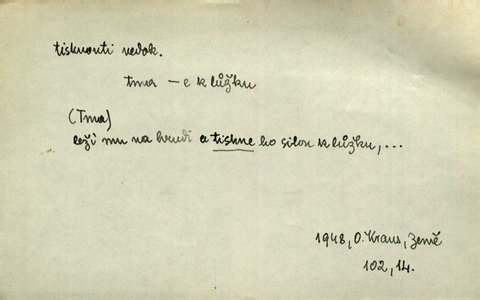 tisknouti nedok.
tma – e k lůžku
(Tma)
leží mu na hrudi a tiskne ho silou k lůžku, ...
1948, O. Kraus, Země
102, 14.